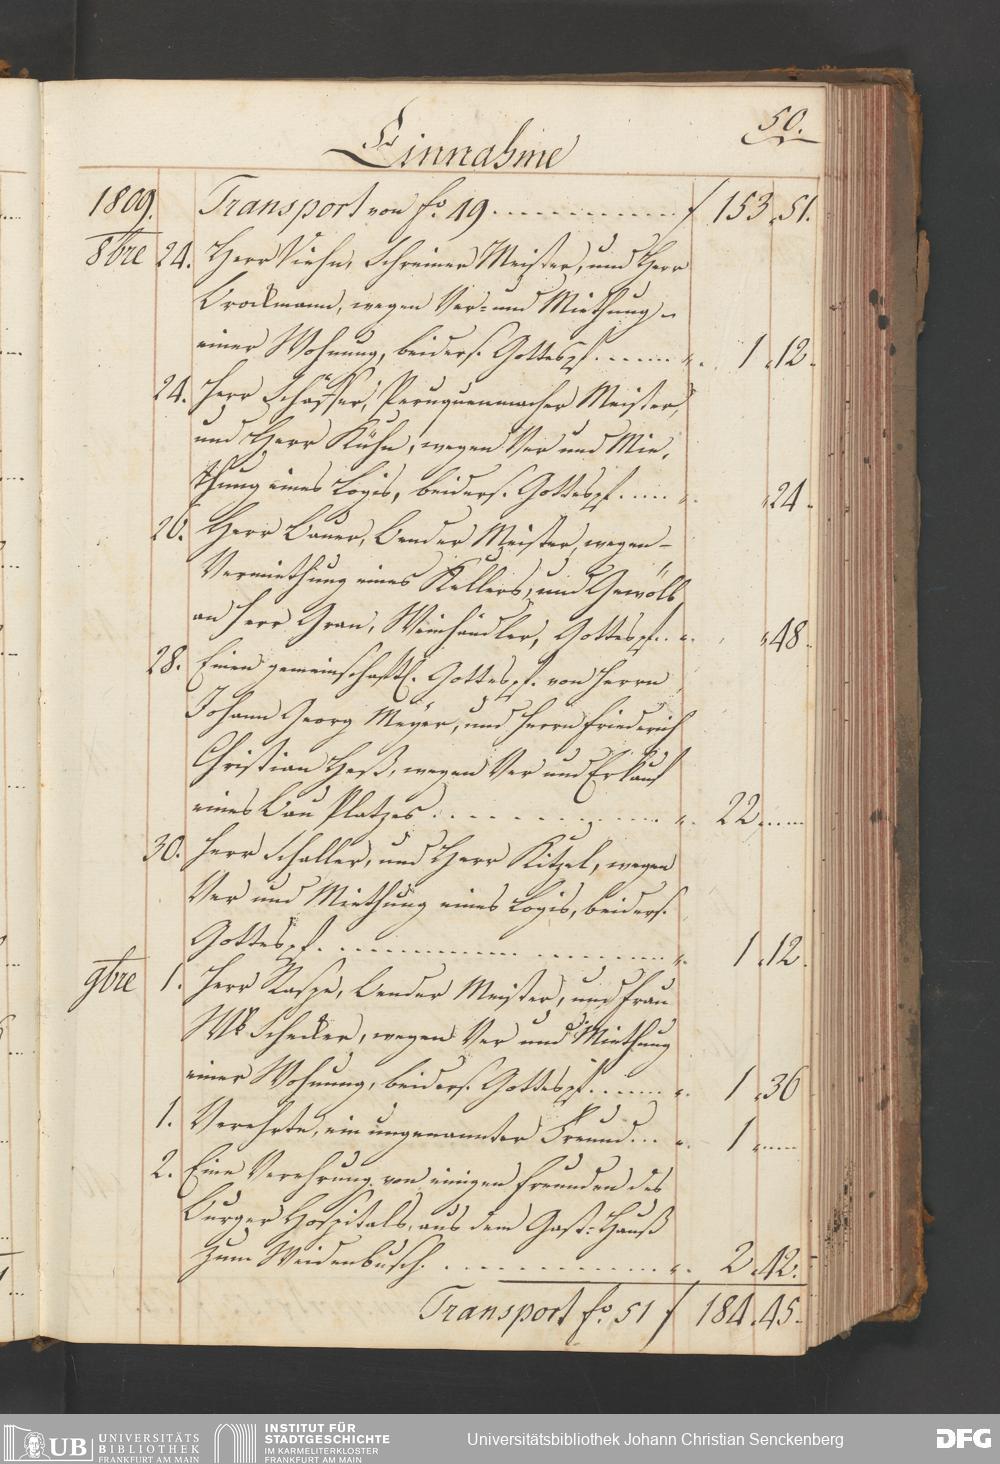 50.
Einnahme
1809. Transport von fo. 49 . . . . . . f 153 „ 51.
8bre 24. Herr Viehn, Schreiner Meister, und Herr
Brockmann, wegen Ver- und Miethung
einer Wohnung, beiders. Gottespf. . . . . „ 1 „ 12.
24. Herr Schäffer, Peruquenmacher Meister,
und Herr Kühn, wegen Ver und Mie,
thung eines Logis, beiders. Gottespf. . . . „ „ 24.
26. Herr Bauer, Bender Meister, wegen
Vermiethung eines Kellers, und Gewölb
an Herr Grau, Weinhändler, Gottespf. . „ „ 48.
28. Einen gemeinschaftl. Gottespf. von Herrn
Johann Georg Meyer, und Herrn Friederich
Christian Heß, wegen Ver und Erkauf
eines Bau Platzes . . . . . . „ 22 „
30. Herr Schaller, und Herr Kitzel, wegen
Ver und Miethung eines Logis, beiders.
Gottespf. . . . . . . „ 1 „ 12.
9bre 1. Herr Raspe, Bender Meister, und Frau
Schecker, wegen Ver und Miethung
einer Wohnung, beiders. Gottespf. . . . . „ 1 „ 36
1. Verehrte, ein ungenannter Freund . . . „ 1 „
2. Eine Verehrung von einigen Freunden des
Burger Hospitals, aus dem Gast-Hauß
zum Weidenbusch. . . . . . . „ 2 „ 42.
Transport fo. 51 f 184 „ 45.
UB UNIVERSITÄTS
BIBLIOTHEK
FRANKFURT AM MAIN
INSTITUT FÜR
STADTGESCHICHTE
IM KARMELITERKLOSTER
FRANKFURT AM MAIN
Universitätsbibliothek Johann Christian Senckenberg
DFG